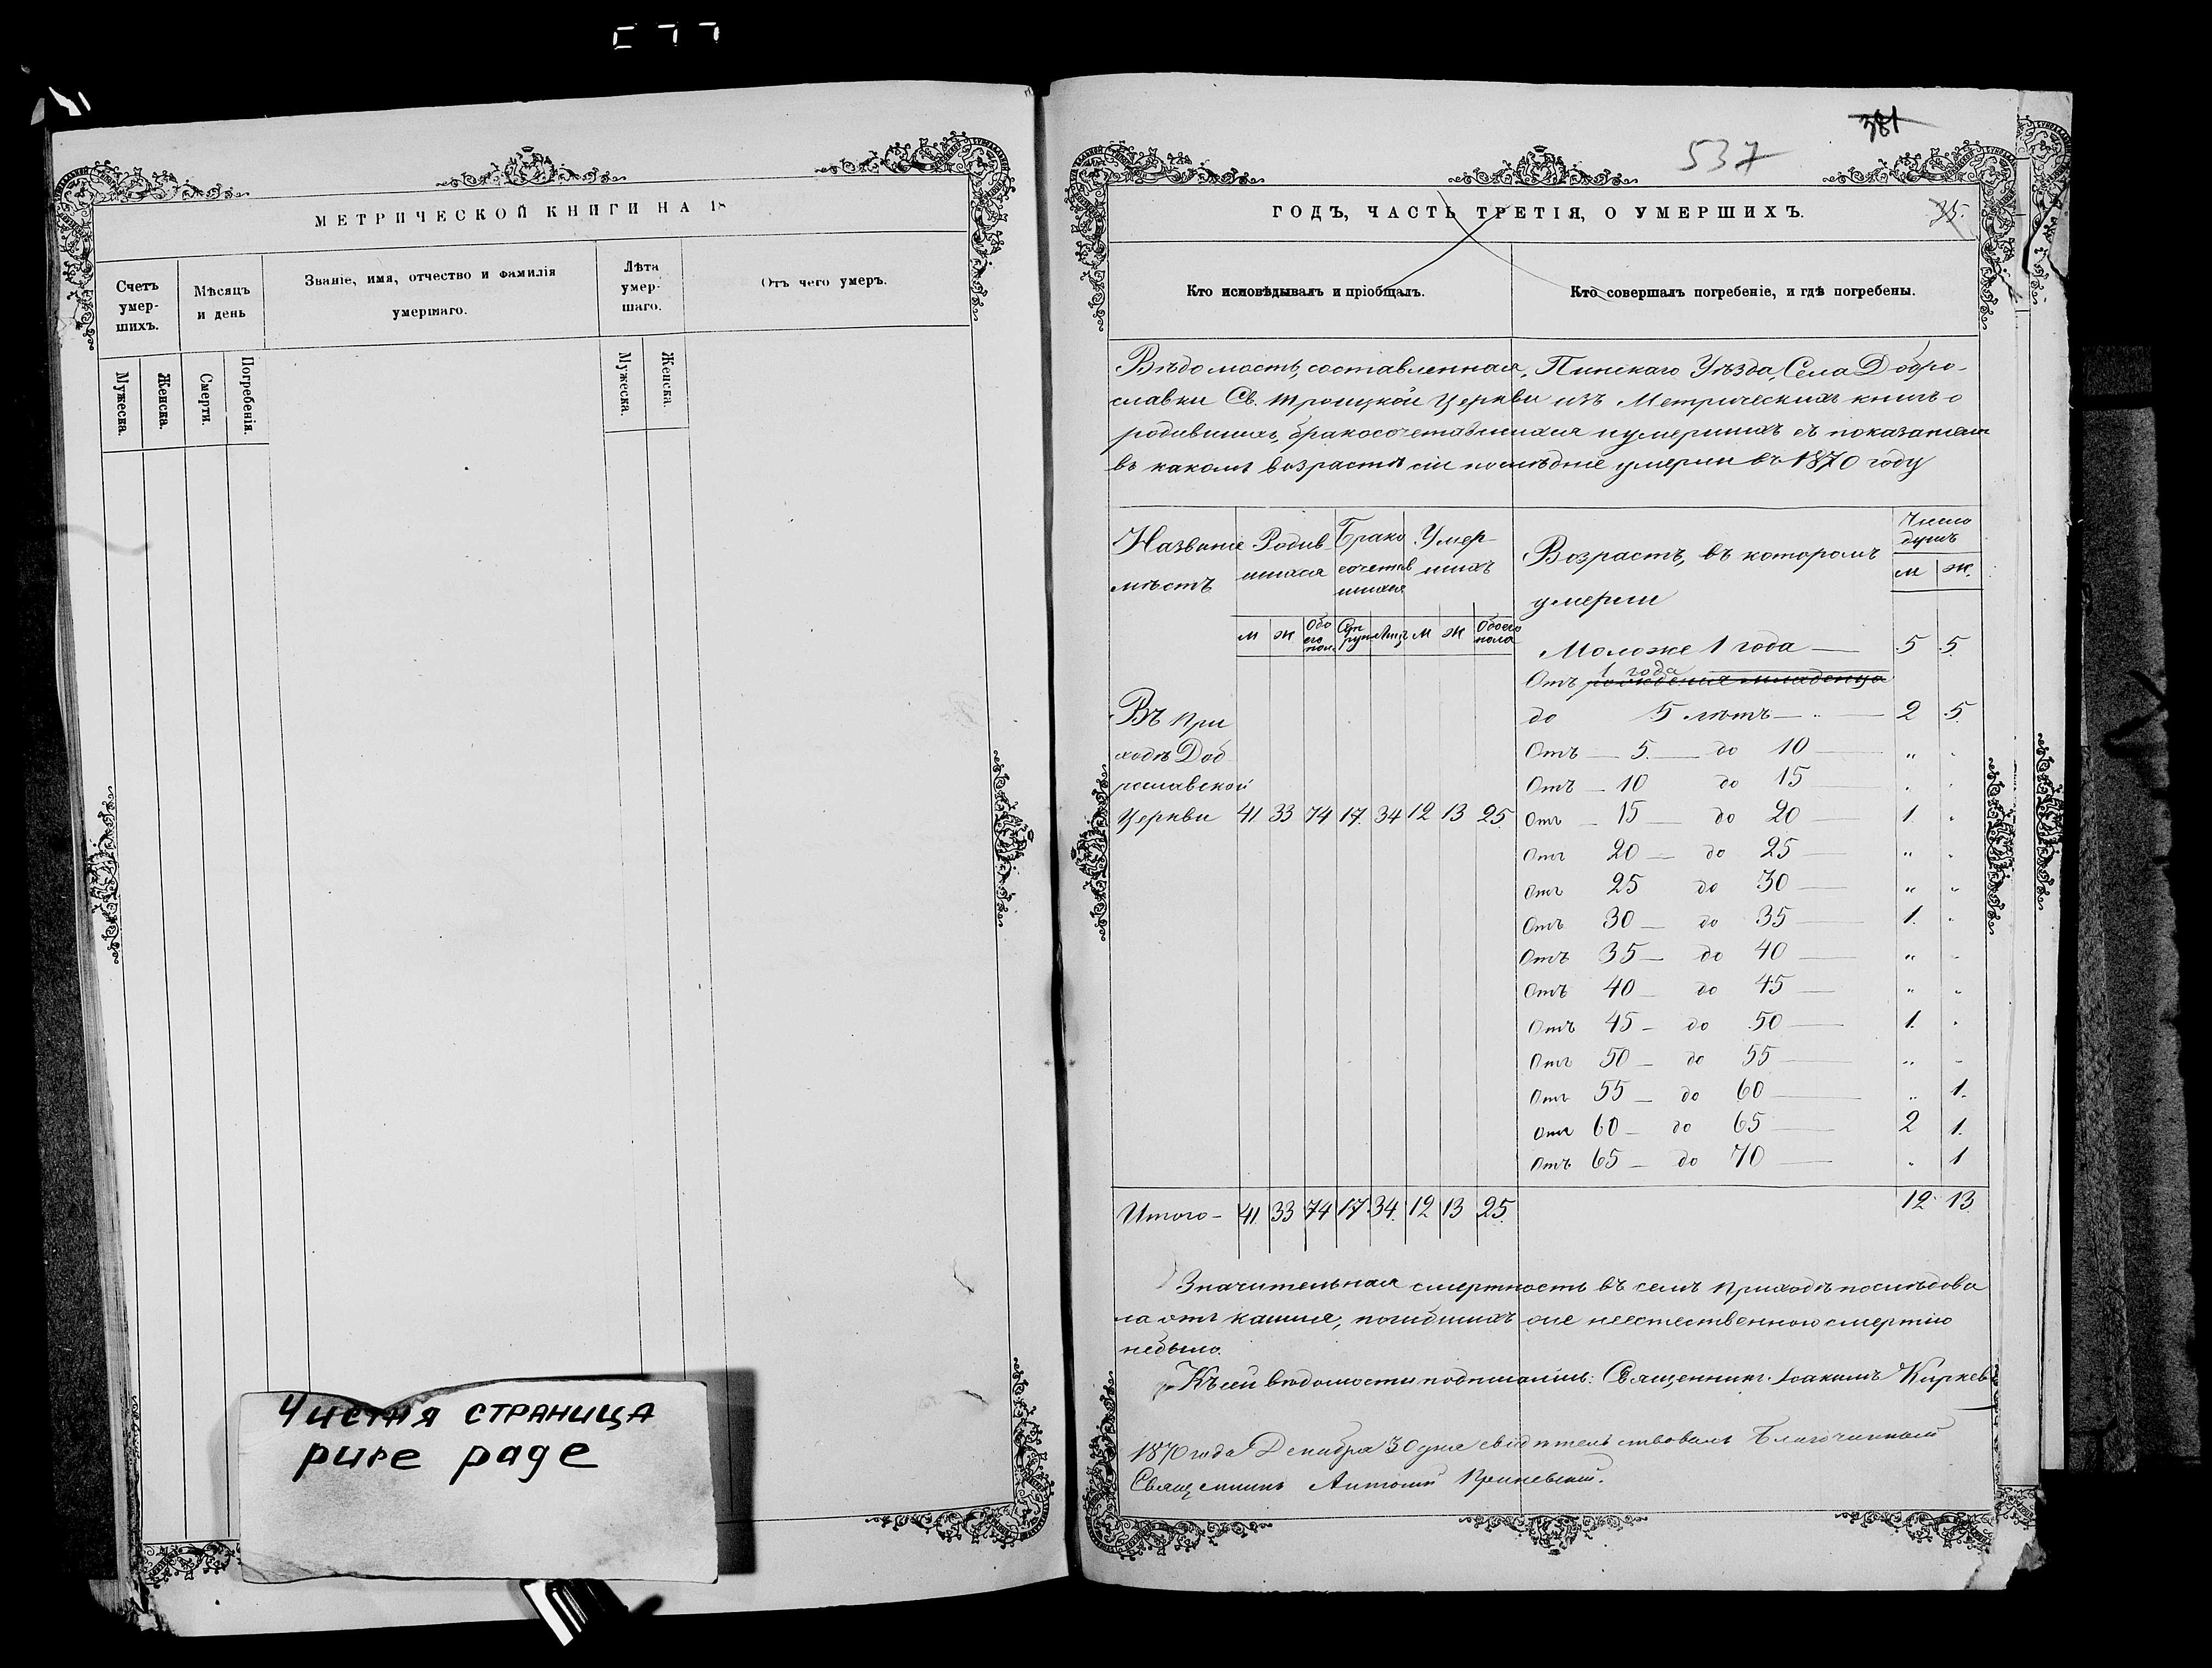 МЕТРИЧЕСКОЙ КНИГИ НА 18
Счетъ умер- шихъ.
Мѣсяцъ и день
Званіе, имя, отчество и фамилія умершаго.
Лѣта умер- шаго.
Отъ чего умеръ.
Мужеска.
Женска.
Смерти.
Погребенія.
Мужеска.
Женска.
Чистая страница
pure page
381
537
35.
ГОДЪ, ЧАСТЬ ТРЕТІЯ, О УМЕРШИХЪ.
Кто исповѣдывалъ и пріобщалъ.
Кто совершалъ погребеніе, и гдѣ погребены.
Вѣдомость, составленная, Пинскаго Уѣзда, Села Добро-
славки Св. Троицкой Церкви изъ Метрическихъ книгъ о
родившихся, бракосочетавшихся и умершихъ съ показаніемъ
въ какомъ возрастѣ сіи послѣдніе умерли въ 1870 году
Названіе мѣстъ
Родив- шихся
Брако сочетав шихся
Умер- шихъ
Возрастъ, въ которомъ умерли
Число душъ
М Ж.
М Ж Обо его пол. Суп руж. Лицъ М Ж Обоего пола
Моложе 1 года — 5 5.
Отъ 1 года
до 5 лѣтъ — 2 5.
Отъ — 5. — до 10 — " "
Отъ — 10 до 15 " "
Отъ — 15 — до 20 — 1. "
Отъ 20 — до 25 — " "
Отъ 25 до 30 — " "
Отъ 30 — до 35 — 1. "
Отъ 35 — до 40 — " "
Отъ 40 — до 45 — " "
Отъ 45 — до 50 — 1. "
Отъ 50 — до 55 — " "
Отъ 55 — до 60 — " 1.
Отъ 60 — до 65 — 2 1.
Отъ 65 — до 70 — " 1
Въ При
ходѣ Доб
рославской
Церкви 41. 33 74 17. 34 12 13 25.
Итого — 41. 33 74 17. 34. 12 13 25.
12 13
Значительная смертность въ семъ приходѣ послѣдова
ла отъ кашля, погибшихъ же неестественною смертію
небыло.
Къ сей вѣдомости подписались: Священникъ Іоакимъ
1870 года Декабря 30 дня свидѣтельствовалъ Благочинный
Священникъ Антоній